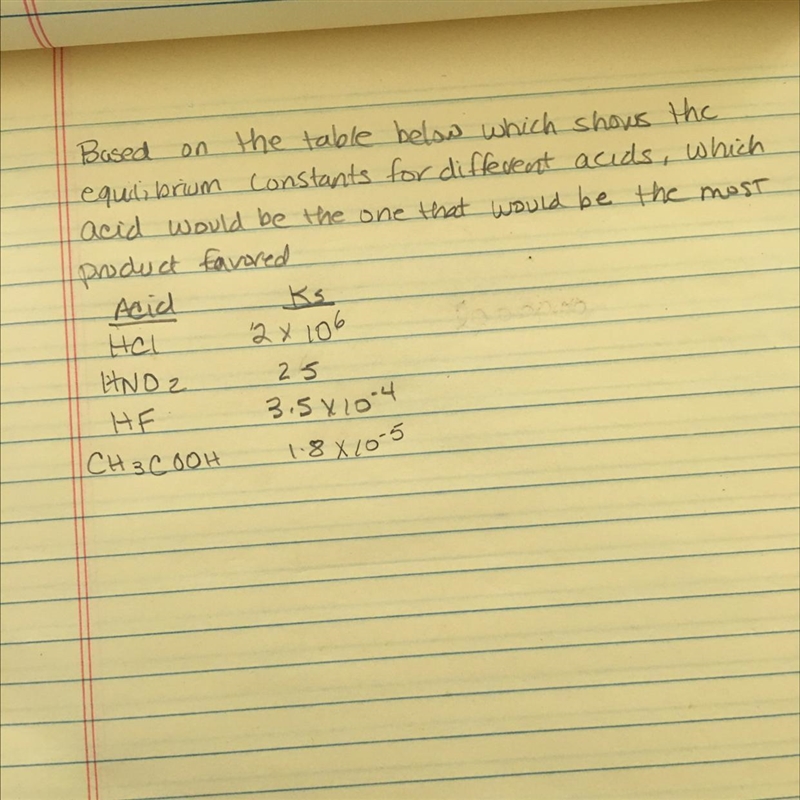 Based on the table below which shows the
equilibrium constants for different acids, which
acid would be the one that would be the most
product favored
Acid Ks
HCl 2 x 10^6
HNO2 25
HF 3.5 x 10^-4
CH3COOH 1.8 x 10^-5